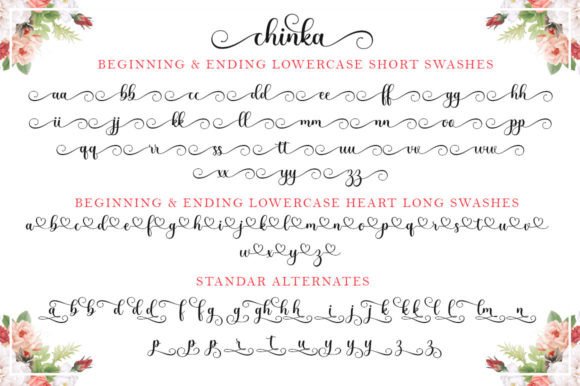 chinka
BEGINNING & ENDING LOWERCASE SHORT SWASHES
aa bb cc dd ee ff gg hh
ii jj kk ll mm nn oo pp
qq rr ss tt uu vv ww
xx yy zz
BEGINNING & ENDING LOWERCASE HEART LONG SWASHES
a b c d e f g h i j k l m n o p q r s t u v
w x y z
STANDAR ALTERNATES
a b b d d f f g g g h h h i j j k k l l l m n
p p p r t u y y y z z